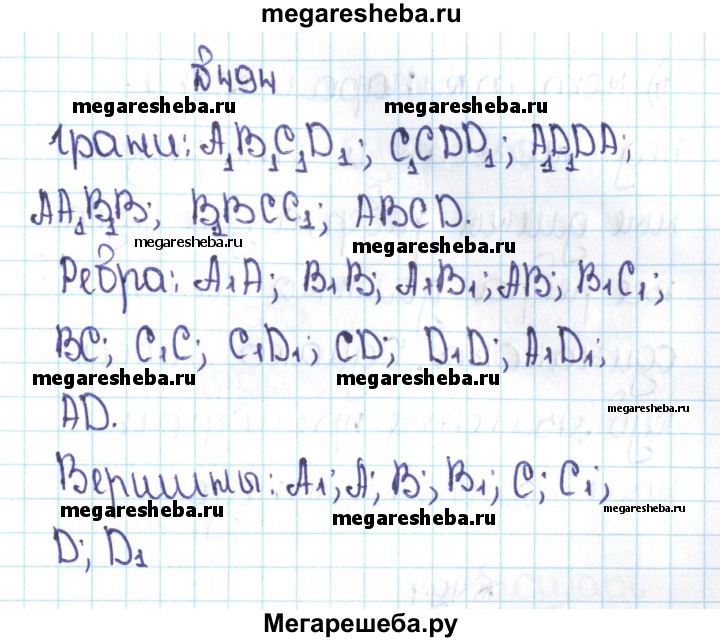 megaresheba.ru
№494
megaresheba.ru megaresheba.ru
Грани: A₁B₁C₁D₁; C₁CDD₁; A₁D₁DA;
AA₁B₁B; B₁BCC₁; ABCD.
megaresheba.ru megaresheba.ru
Рёбра: A₁A; B₁B; A₁B₁; AB; B₁C₁;
BC; C₁C; C₁D₁; CD; D₁D; A₁D₁;
megaresheba.ru megaresheba.ru megaresheba.ru
AD.
Вершины: A₁; A; B; B₁; C; C₁;
megaresheba.ru megaresheba.ru megaresheba.ru
D; D₁
Мегарешеба.ру